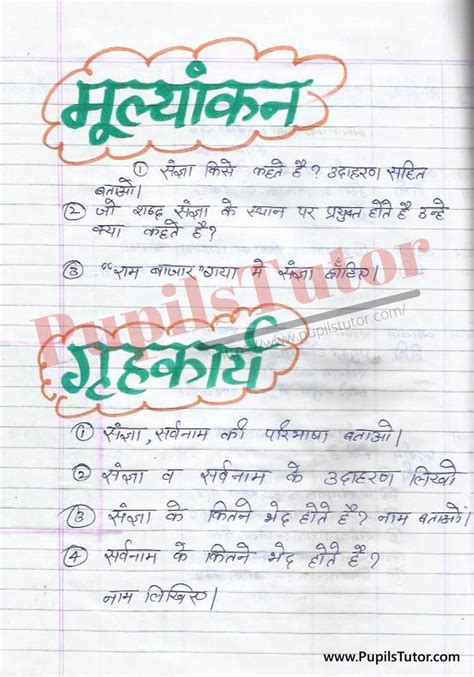 मूल्यांकन
① संज्ञा किसे कहते है? उदाहरण सहित
बताओ।
② जो शब्द संज्ञा के स्थान पर प्रयुक्त होते है उन्हे
क्या कहते है?
③ "राम बाजार" गया मे संज्ञा छाँटिए।
PupilsTutor
https://www.pupilstutor.com/
गृहकार्य
① संज्ञा, सर्वनाम की परिभाषा बताओ।
② संज्ञा व सर्वनाम के उदाहरण लिखो
③ संज्ञा के कितने भेद होते है? नाम बताओ।
④ सर्वनाम के कितने भेद होते है?
नाम लिखिए।
www.PupilsTutor.com